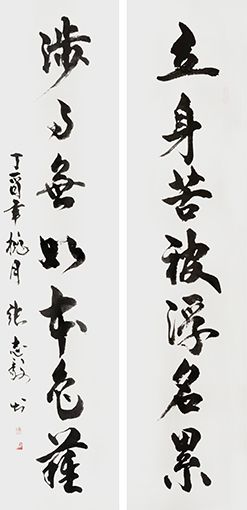 立身苦被浮名累
涉世無如本色難
丁酉年桃月張志毅书